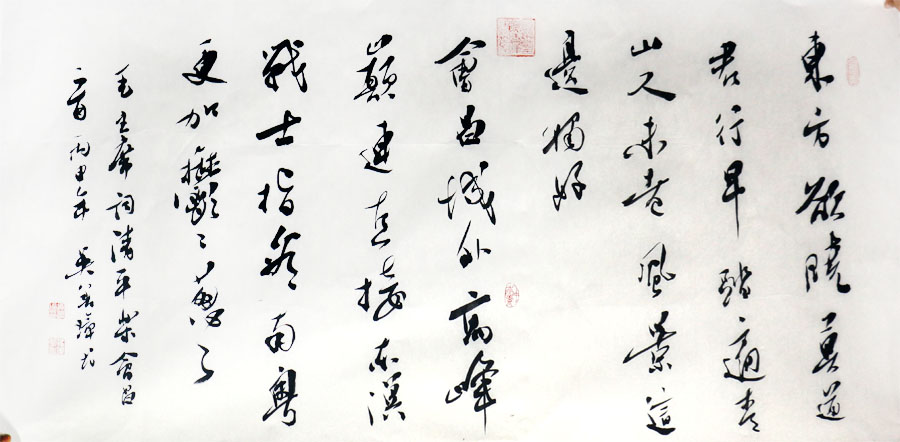 東方欲曉莫道
君行早踏遍青
山人未老風景這
邊獨好
會昌城外高峰
巔連直接東溟
戰士指看南粵
更加鬱〻蔥〻
毛主席詞清平樂會昌
一首丙申年吳善璋书